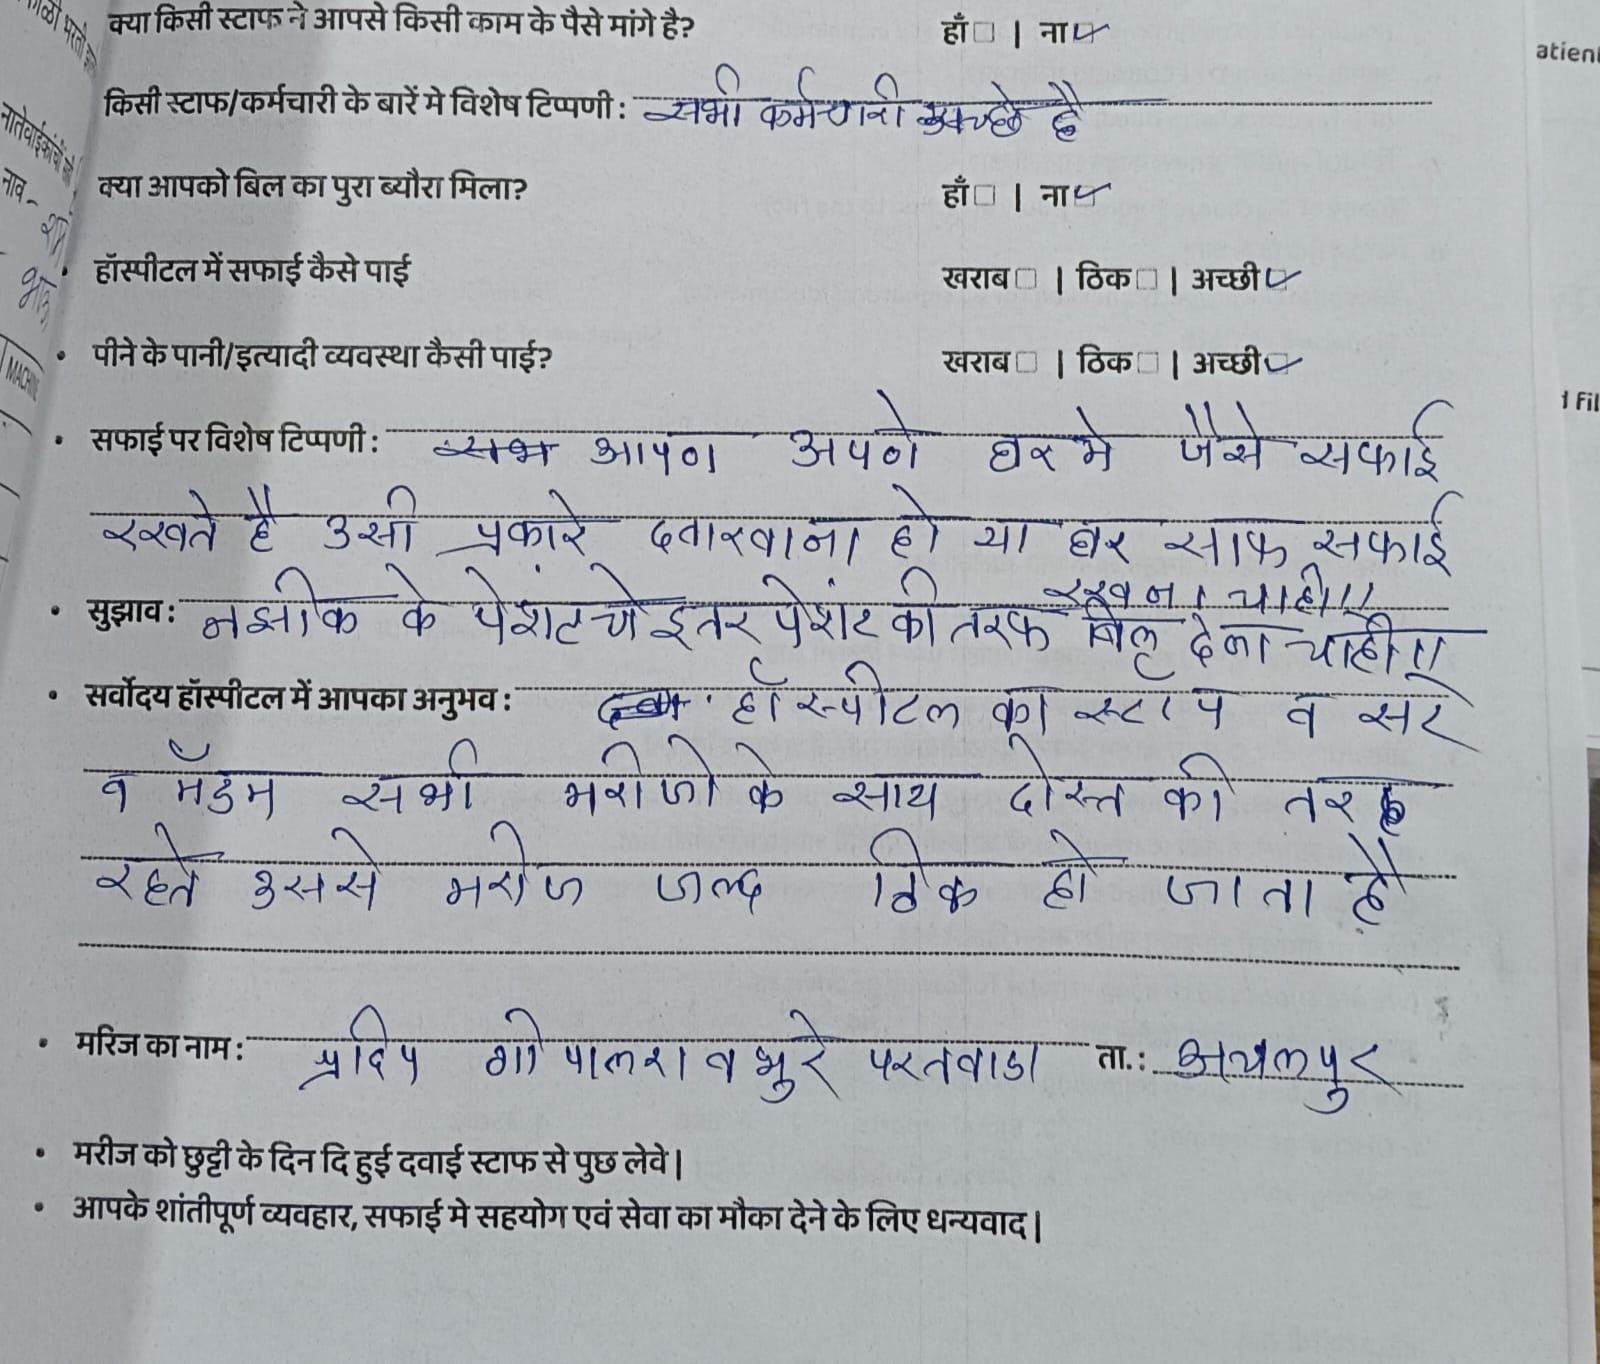 क्या किसी स्टाफ ने आपसे किसी काम के पैसे मांगे है? हाँ□ | ना☑
किसी स्टाफ/कर्मचारी के बारें मे विशेष टिप्पणी : सभी कर्मचारी अच्छे है
क्या आपको बिल का पुरा ब्यौरा मिला? हाँ□ | ना☑
• हॉस्पीटल में सफाई कैसे पाई खराब□ | ठिक□ | अच्छी☑
• पीने के पानी/इत्यादी व्यवस्था कैसी पाई? खराब□ | ठिक□ | अच्छी☑
• सफाई पर विशेष टिप्पणी : आपण अपणे घर मे जैसे सफाई
रखते है उसी प्रकारे दवाखाना हो या घर साफ सफाई
रखना चाही॥
• सुझाव : के पेशंटचे इतर पेशंट की तरफ देना चाही॥
• सर्वोदय हॉस्पीटल में आपका अनुभव : हॉस्पीटल का स्टाप व सर
व मॅडम सभी मरीजो के साथ दोस्त की तरह
रहते उससे मरीज जल्द ठिक हो जाता है
• मरिज का नाम : प्रदिप गोपालराव भुरे परतवाडा ता.: अचलपुर
• मरीज को छुट्टी के दिन दि हुई दवाई स्टाफ से पुछ लेवे |
• आपके शांतीपूर्ण व्यवहार, सफाई मे सहयोग एवं सेवा का मौका देने के लिए धन्यवाद |
नाव -
MACHINE
atien
d Fil